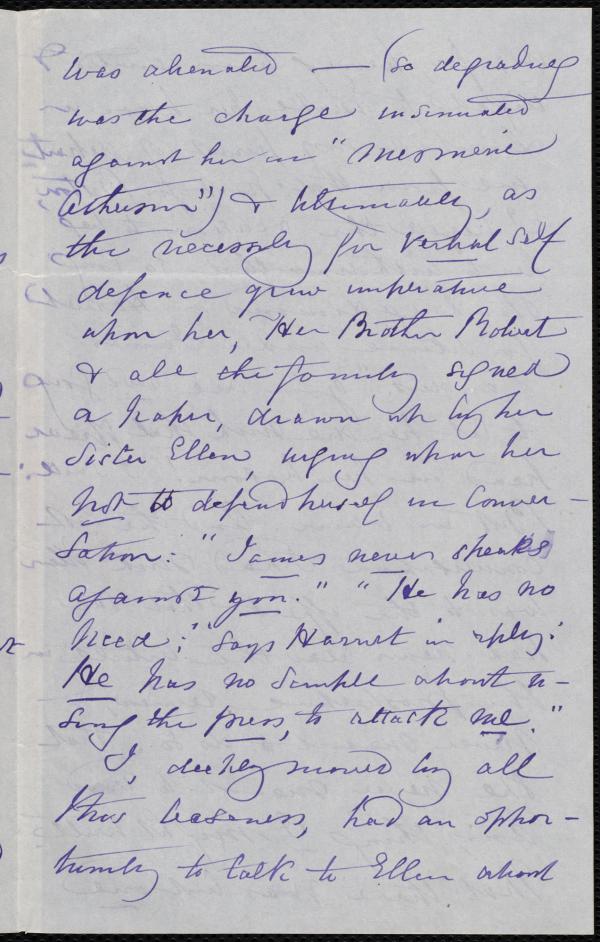 was alienated — (so degrading
was the charge insinuated
against her in "Mesmeric
Atheism") & ultimately, as
the necessity for verbal self
defence grew imperative
upon her, Her Brother Robert
& all the family signed
a paper, drawn up by her
Sister Ellen, urging upon her
not to defend herself in conver-
sation: "James never speaks
against you." "He has no
need;" says Harriet in reply:
He has no scruple about u-
sing the press, to attack me."
I, deeply moved by all
this baseness, had an oppor-
tunity to talk to Ellen about